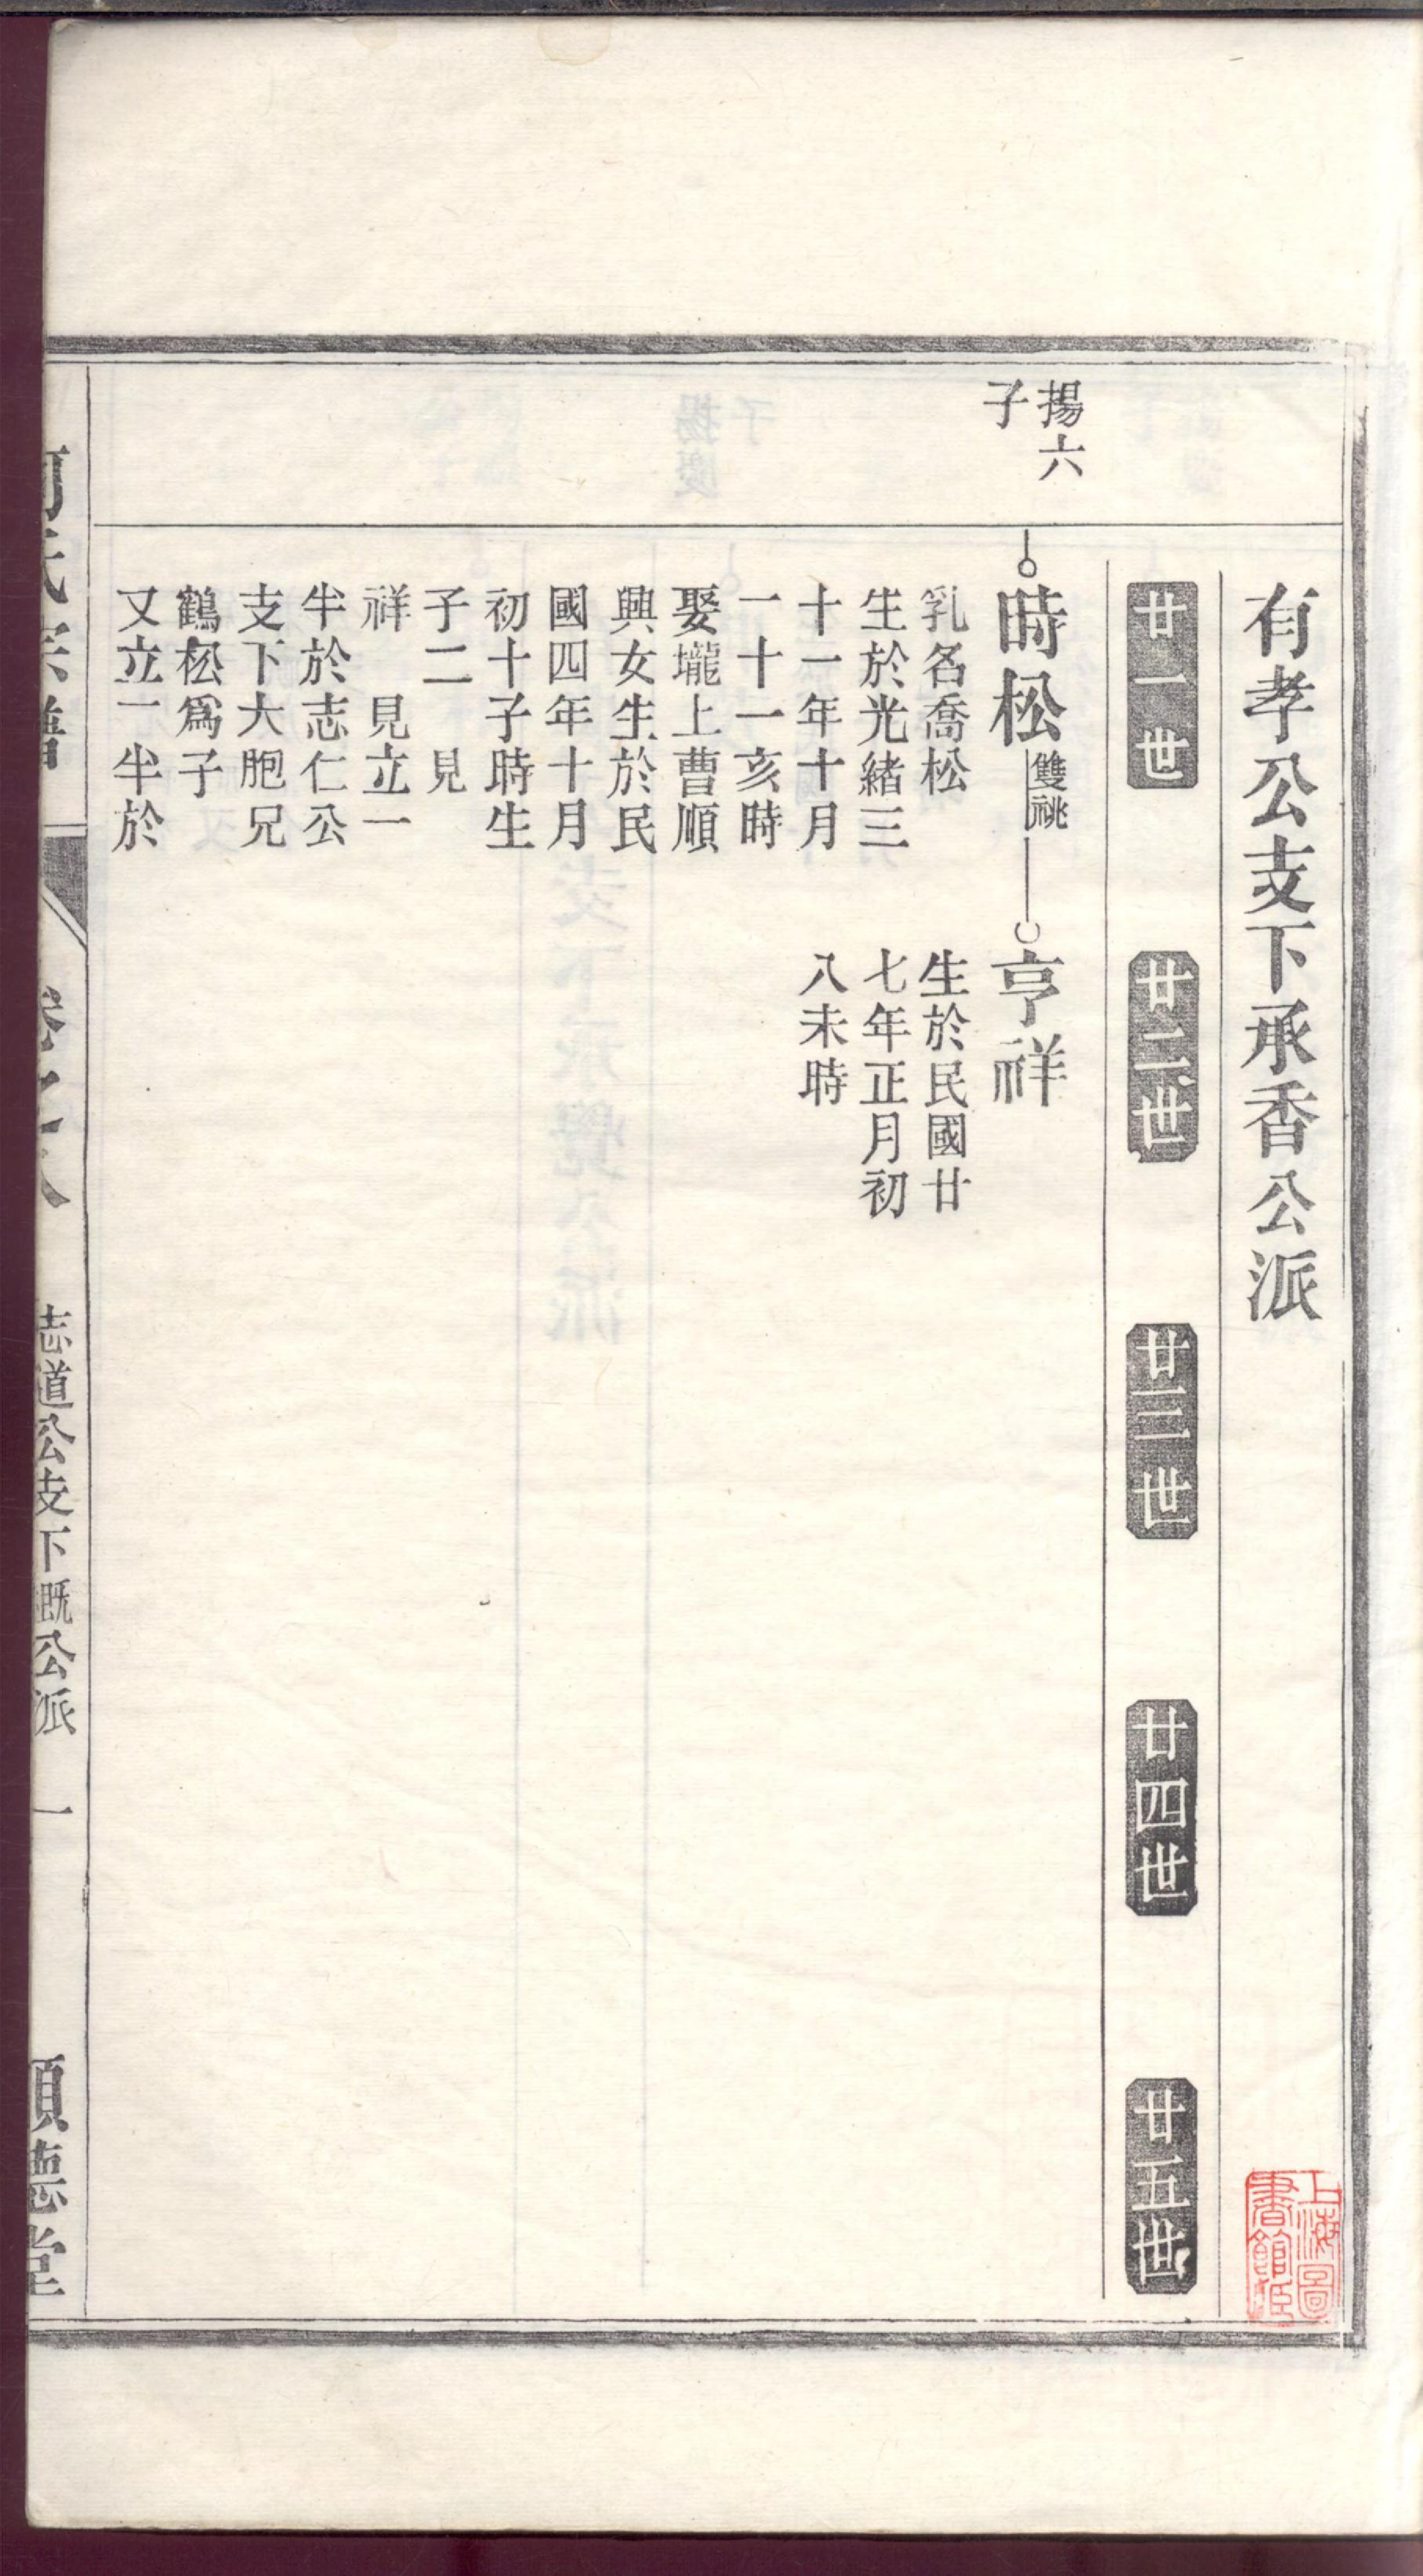 有孝公支下承香公派
廿一世
廿二世
廿三世
廿四世
廿五世
揚六
子
時松
雙祧
乳名喬松
生於光緒三
十一年十月
一十一亥時
娶壠上曹順
興女生於民
國四年十月
初十子時生
子二 見
祥 見立一
半於志仁公
支下大胞兄
鶴松爲子
又立一半於
亨祥
生於民國廿
七年正月初
八未時
氏宗譜
志道公支下既公派 一
順德堂
上海圖
書館